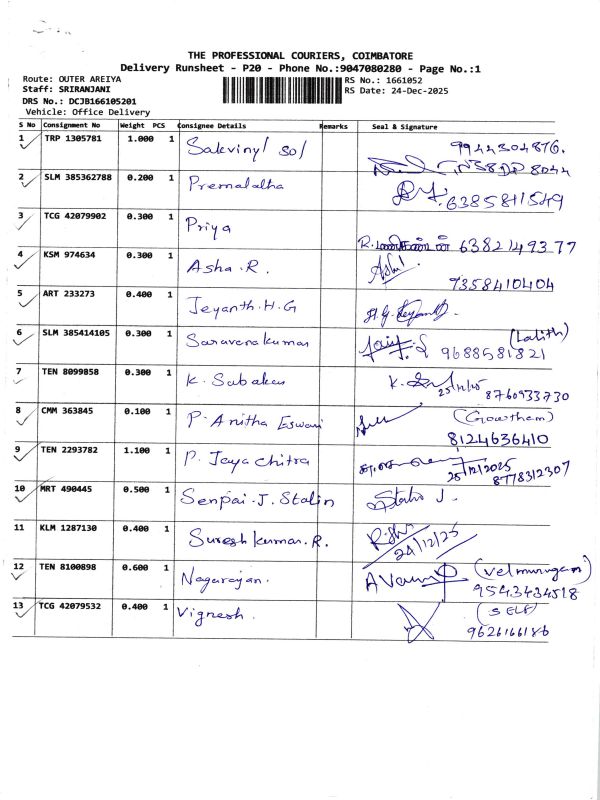 THE PROFESSIONAL COURIERS, COIMBATORE
Delivery Runsheet - P20 - Phone No.:9047080280 - Page No.:1
Route: OUTER AREIYA
RS No.: 1661052
Staff: SRIRANJANI
RS Date: 24-Dec-2025
DRS No.: DCJB166105201
Vehicle: Office Delivery
S No Consignment No Weight PCS Consignee Details Remarks Seal & Signature
1 TRP 1305781 1.000 1 9944304876.
8044
2 SLM 385362788 0.200 1 Premalatha 6385811549
3 TCG 42079902 0.300 1 Priya R. 6382149377
4 KSM 974634 0.300 1 Asha.R. 7358410404
5 ART 233273 0.400 1 Jeyanth.H.G
6 SLM 385414105 0.300 1 Saravanakumar (Lalith)
9688581821
7 TEN 8099858 0.300 1 K. K. 25/12/25
8760933730
8 CMM 363845 0.100 1 P. Anitha Eswari (Gowtham)
8124636410
9 TEN 2293782 1.100 1 P. Jeyachitra 25/12/2025
8778312307
10 MRT 490445 0.500 1 Senpai.J.Stalin J.
11 KLM 1287130 0.400 1 Suresh kumar.R.
24/12/25
12 TEN 8100898 0.600 1 Nagarajan. (Velmurugan)
9543434518
13 TCG 42079532 0.400 1 Vignesh. (SELF)
9626166186